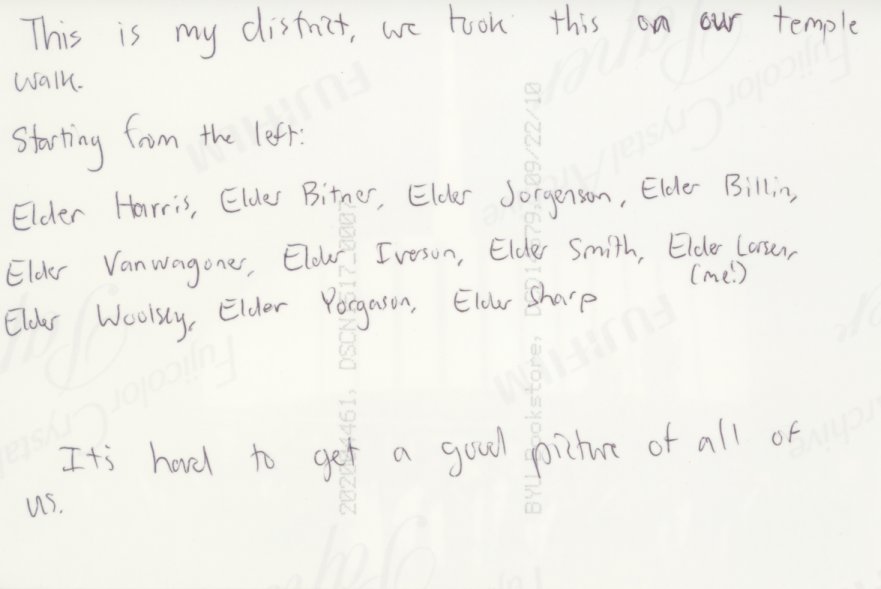 This is my district, we took this on our temple
walk.
Starting from the left:
Elder Harris, Elder Bitner, Elder Jorgenson, Elder Billin,
Elder Vanwagoner, Elder Iverson, Elder Smith, Elder Larsen,
(me!)
Elder Woolsey, Elder Yorgason, Elder Sharp
It's hard to get a good picture of all of
us.
FUJIFILM
Fujicolor Crystal Archive
Paper
FUJIFILM
Fujicolor Crystal
BYU Bookstore, 09/22/10